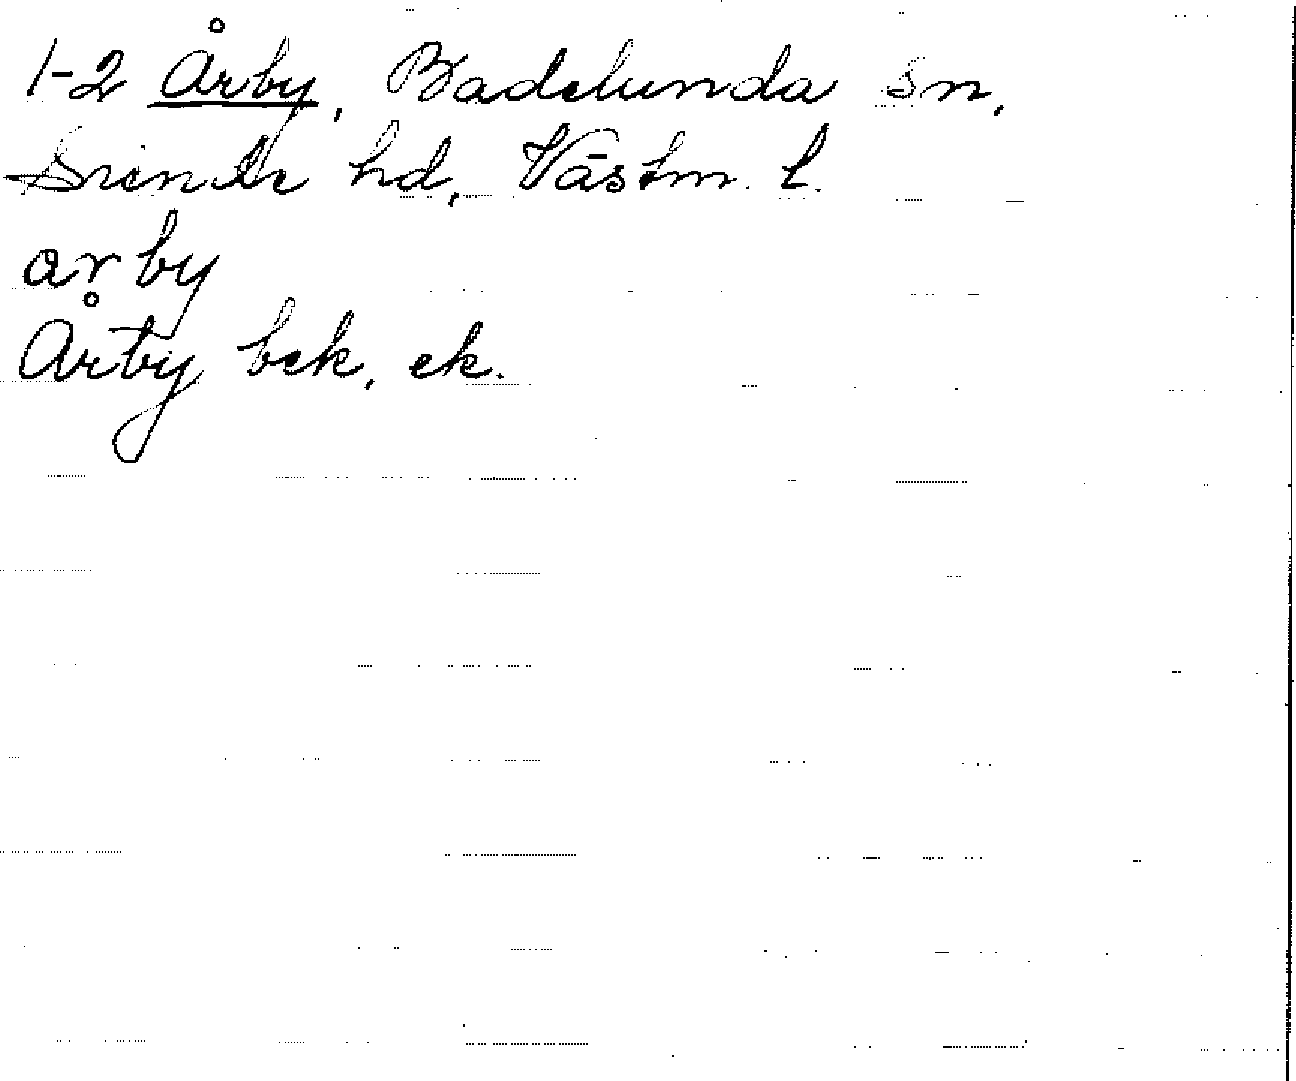 1-2 Årby, Badelunda sn,
Siende hd, Västm. l.
årby
Årby bek. ek.